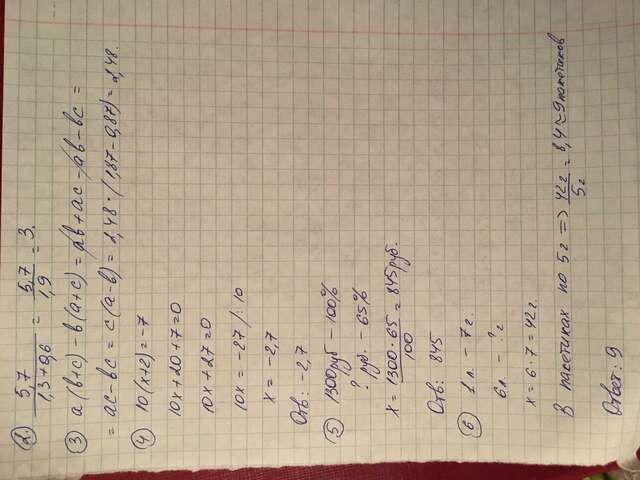 2. 5,7 / 1,3+0,6 = 5,7 / 1,9 = 3.
3 a(b+c) - b(a+c) = ab + ac - ab - bc =
= ac - bc = c(a-b) = 2,48 · (1,87 - 0,87) = 2,48.
4 10(x+2) = -7
10x + 20 + 7 = 0
10x + 27 = 0
10x = -27 /: 10
x = -2,7
Отв: -2,7
5 1300 руб - 100%
? руб. - 65%
x = 1300·65 / 100 = 845 руб.
Отв: 845
6 1 л. - 7 г.
6 л. - ? г
x = 6·7 = 42 г.
В пакетиках по 5 г => 42 г / 5 г = 8,4 ≈ 9 пакетиков
Ответ: 9